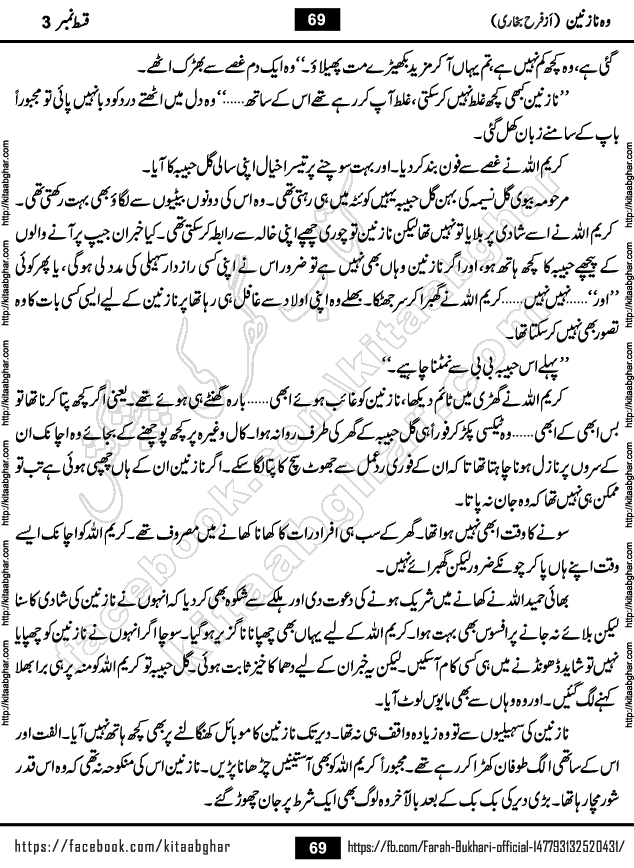 وہ نازنین (از فرح بخاری)
69
قسط نمبر 3
گئی ہے، وہ کچھ کم نہیں ہے، تم یہاں آ کر مزید بکھیڑے مت پھیلاؤ۔‘‘ وہ ایک دم غصے سے بھڑک اٹھے۔
’’نازنین کبھی کچھ غلط نہیں کر سکتی، غلط آپ کر رہے تھے اس کے ساتھ......‘‘ وہ دل میں اٹھتے درد کو دبا نہیں پائی تو مجبوراً
باپ کے سامنے زبان کھل گئی۔
کریم اللہ نے غصے سے فون بند کر دیا۔ اور بہت سوچنے پر تیسرا خیال اپنی سالی گل حبیبہ کا آیا۔
مرحومہ بیوی گل نسیمہ کی بہن گل حبیبہ یہیں کوئٹہ میں ہی رہتی تھی۔ وہ اس کی دونوں بیٹیوں سے لگاؤ بھی بہت رکھتی تھی۔
کریم اللہ نے اسے شادی پر بلایا تو نہیں تھا لیکن نازنین تو چوری چھپے اپنی خالہ سے رابطہ کر سکتی تھی۔ کیا خبر ان جیپ پر آنے والوں
کے پیچھے حبیبہ کا کچھ ہاتھ ہو، اور اگر نازنین وہاں بھی نہیں ہے تو ضرور اس نے اپنی کسی رازدار سہیلی کی مدد لی ہو گی، یا پھر کوئی
’’اور‘‘......نہیں نہیں......کریم اللہ نے گھبرا کر سر جھٹکا۔ بھلے وہ اپنی اولاد سے غافل ہی رہا تھا پر نازنین کے لیے ایسی کسی بات کا وہ
تصور بھی نہیں کر سکتا تھا۔
’’پہلے اس حبیبہ بی بی سے نمٹنا چاہیے۔‘‘
کریم اللہ نے گھڑی میں ٹائم دیکھا، نازنین کو غائب ہوئے ابھی......بارہ گھنٹے ہی ہوئے تھے۔ یعنی اگر کچھ پتا کرنا تھا تو
بس ابھی کے ابھی......وہ ٹیکسی پکڑ کر فوراً ہی گل حبیبہ کے گھر کی طرف روانہ ہوا۔ کال وغیرہ پر کچھ پوچھنے کے بجائے وہ اچانک ان
کے سروں پر نازل ہونا چاہتا تھا تا کہ ان کے فوری ردعمل سے جھوٹ سچ کا پتا لگا سکے۔ اگر نازنین ان کے ہاں چھپی ہوئی ہے تب تو
ممکن ہی نہیں تھا کہ وہ جان نہ پاتا۔
سونے کا وقت ابھی نہیں ہوا تھا۔ گھر کے سب ہی افراد رات کا کھانا کھانے میں مصروف تھے۔ کریم اللہ کو اچانک ایسے
وقت اپنے ہاں پا کر چونکے ضرور لیکن گھبرائے نہیں۔
بھائی حمید اللہ نے کھانے میں شریک ہونے کی دعوت دی اور ہلکے سے شکوہ بھی کر دیا کہ انہوں نے نازنین کی شادی کا سنا
لیکن بلائے نہ جانے پر افسوس بھی بہت ہوا۔ کریم اللہ کے لیے یہاں بھی چھپانا ناگزیر ہو گیا۔ سوچا اگر انہوں نے نازنین کو چھپایا
نہیں تو شاید ڈھونڈنے میں ہی کسی کام آ سکیں۔ لیکن یہ خبر ان کے لیے دھماکا خیز ثابت ہوئی۔ گل حبیبہ تو کریم اللہ کو منہ پر ہی برا بھلا
کہنے لگ گئیں۔ اور وہ وہاں سے بھی مایوس لوٹ آیا۔
نازنین کی سہیلیوں سے تو وہ زیادہ واقف ہی نہ تھا۔ دیر تک نازنین کا موبائل کھنگالنے پر بھی کچھ ہاتھ نہیں آیا۔ الفت اور
اس کے ساتھی الگ طوفان کھڑا کر رہے تھے۔ مجبوراً کریم اللہ کو بھی آستینیں چڑھانا پڑیں۔ نازنین اس کی منکوحہ نہ تھی کہ وہ اس قدر
شور مچا رہا تھا۔ بڑی دیر کی بک بک کے بعد بالآخر وہ لوگ بھی ایک شرط پر جان چھوڑ گئے۔
http://kitaabghar.com http://kitaabghar.com http://kitaabghar.com http://kitaabghar.com http://kitaabghar.com http://kitaabghar.com
http://kitaabghar.com http://kitaabghar.com http://kitaabghar.com http://kitaabghar.com http://kitaabghar.com http://kitaabghar.com
کتاب گھر کی پیشکش
facebook.com/kitaabghar
kitaabghar.com
https://facebook.com/kitaabghar
69
https://fb.com/Farah-Bukhari-official-147793132520431/